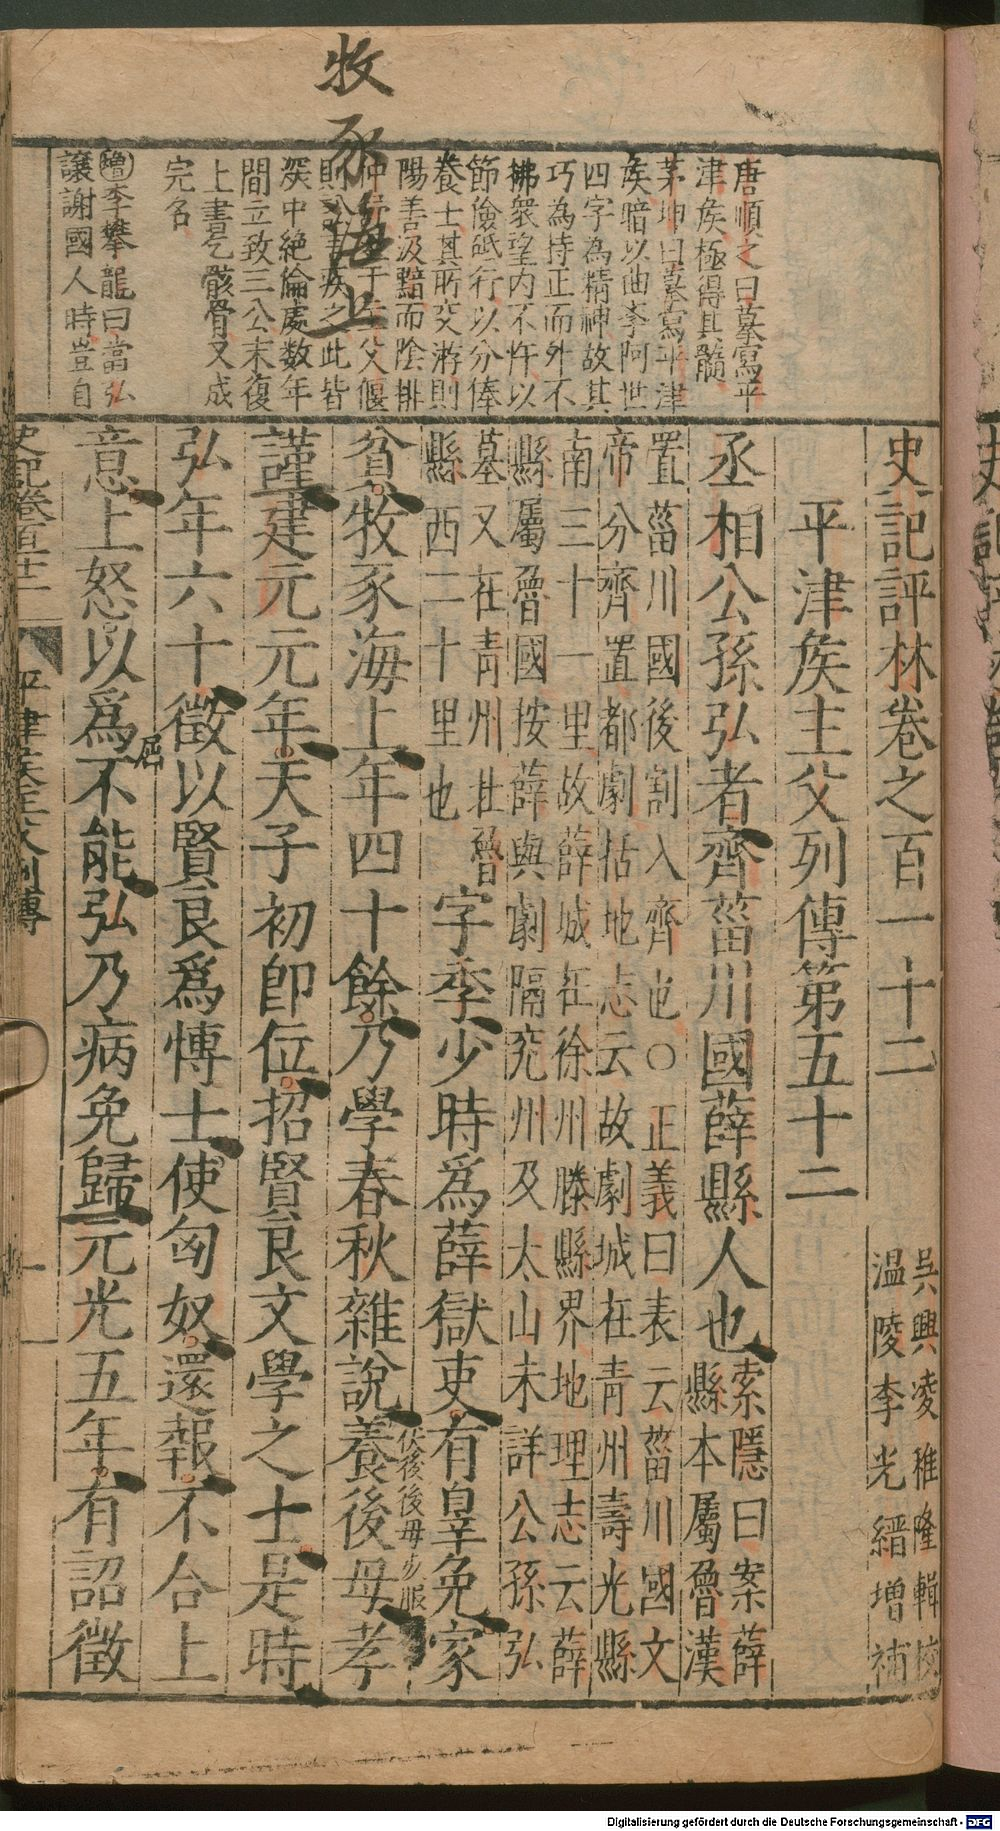 牧豕海上
唐順之曰摹寫平
津矦極得其髓
茅坤曰摹寫平津
矦暗以曲李阿世
四字為精神故其
巧為持正而外不
拂衆望内不忤以
節儉砥行以分俸
養士其所交游則
陽善汲黯而陰排
仲行主父偃
則公疾之此皆
深中絶倫處数年
間立致三公末復
上書乞骸骨又成
完名
增李攀龍曰當弘
讓謝國人時豈自
史記評林卷之百一十二
吳興凌稚隆輯校
温陵李光縉增補
平津矦主父列傳第五十二
丞相公孫弘者齊菑川國薛縣人也
索隱曰案薛
縣本屬魯漢
置菑川國後割入齊也○正義曰表云菑川國文
帝分齊置都劇括地志云故劇城在青州壽光縣
南三十一里故薛城在徐州滕縣界地理志云薛
縣屬魯國按薛與劇隔兖州及太山未詳公孫弘
墓又在青州北魯
縣西二十里也
字季少時爲薛獄吏有辠免家
貧牧豕海上年四十餘乃學春秋雜說養後母孝
後母歿服
謹建元元年天子初卽位招賢良文學之士是時
弘年六十徵以賢良爲博士使匈奴還報不合上
意上怒以爲不能弘乃病免歸元光五年有詔徵
屈
史記卷百十二
平津矦主父列傳
一
Digitalisierung gefördert durch die Deutsche Forschungsgemeinschaft - DFG